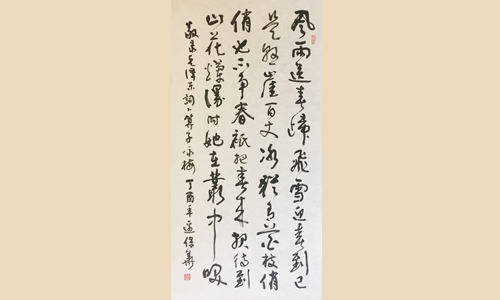 風雨送春歸飛雪迎春到已
是懸崖百丈冰猶有花枝俏
俏也不争春祇把春来报待到
山花爛漫时她在叢中咲
敬录毛澤东詞卜算子咏梅 丁酉年 保華